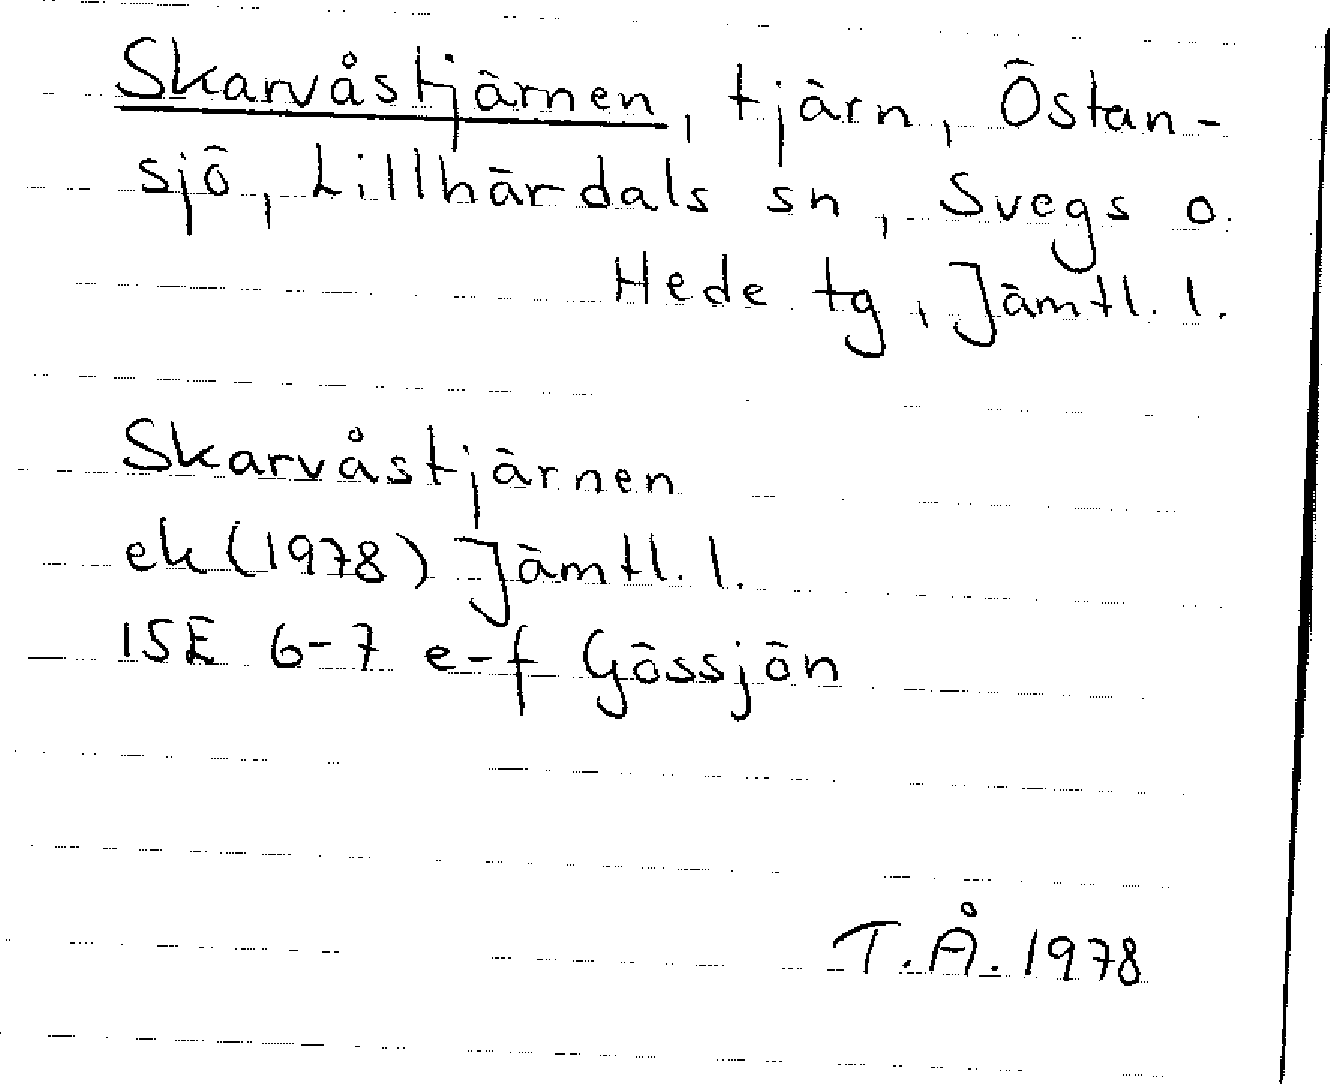 Skarvåstjärnen, tjärn, Östan-
sjö, Lillhärdals sn, Svegs o.
Hede tg, Jämtl. l.
Skarvåstjärnen
ek (1978) Jämtl. l.
15E 6-7 e-f Gåssjön
T.Å. 1978